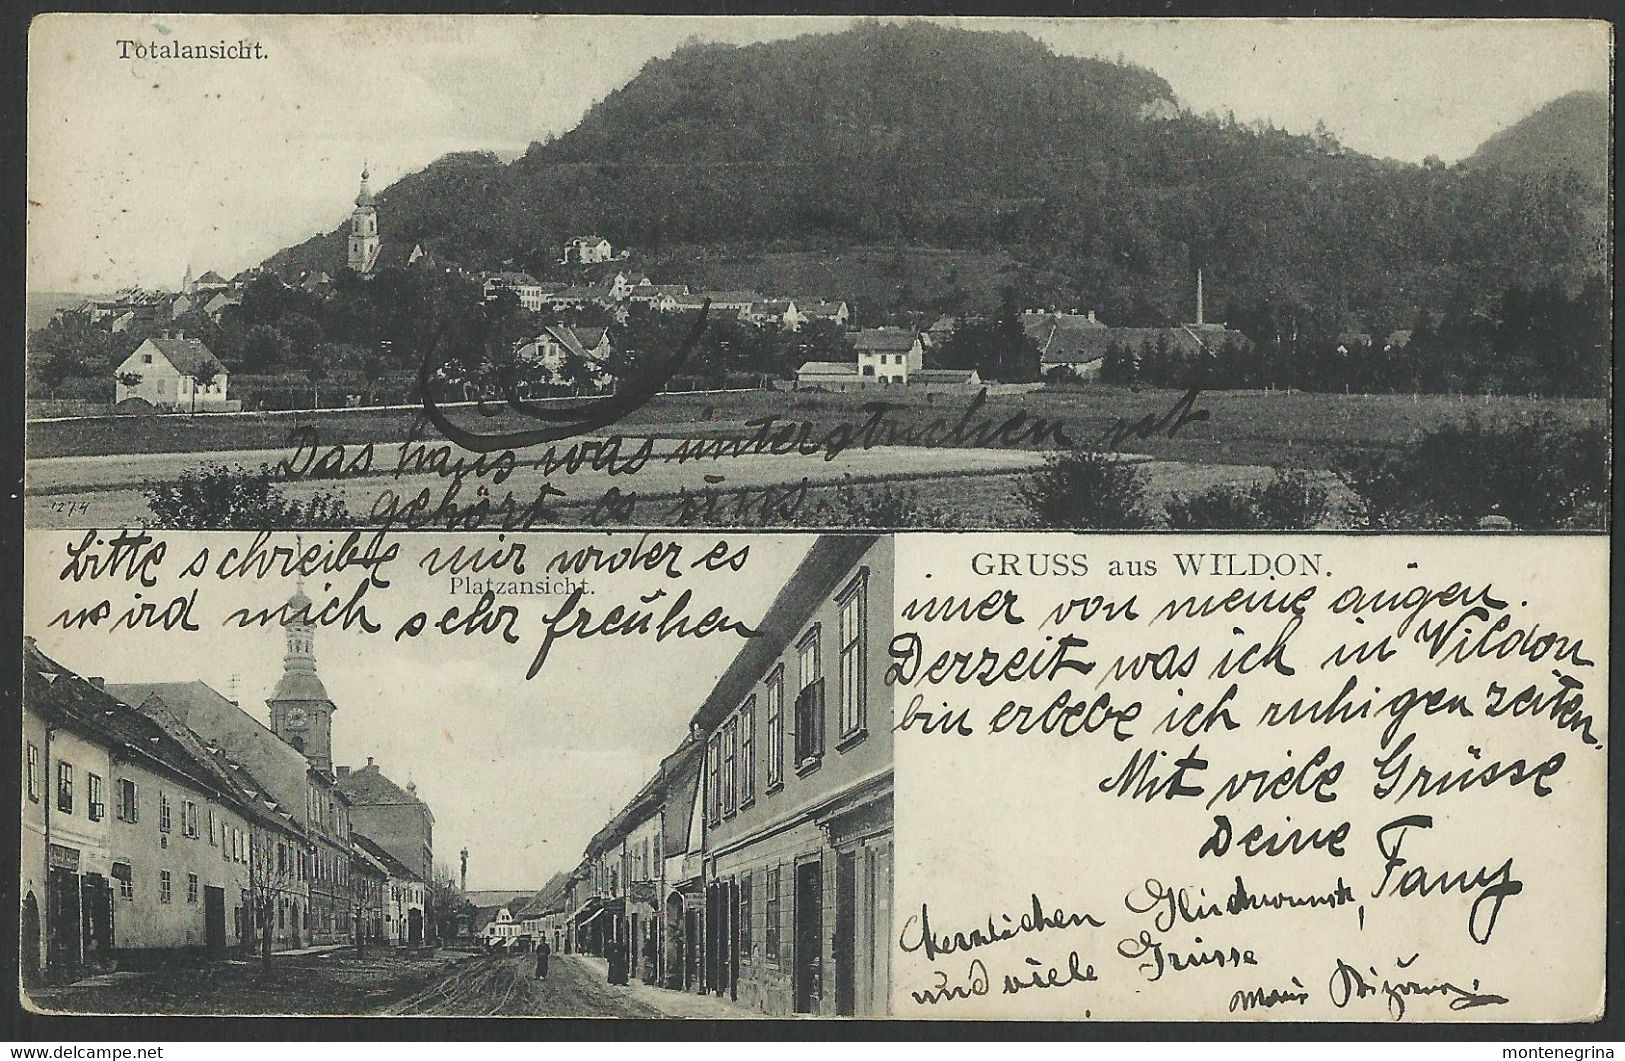 Totalansicht.
Das haus was unterstrichen ist
gehört es uns.
1274
Bitte schreibe mir wider es
wird mich sehr freühen
Platzansicht.
GRUSS aus WILDON.
imer von meine augen.
Derzeit was ich in Vildon
bin erlebe ich ruhigen zeiten.
Mit viele Grüsse
Deine
Fany
Herzlichen Glückwunsch,
und viele Grüsse
montenegrina